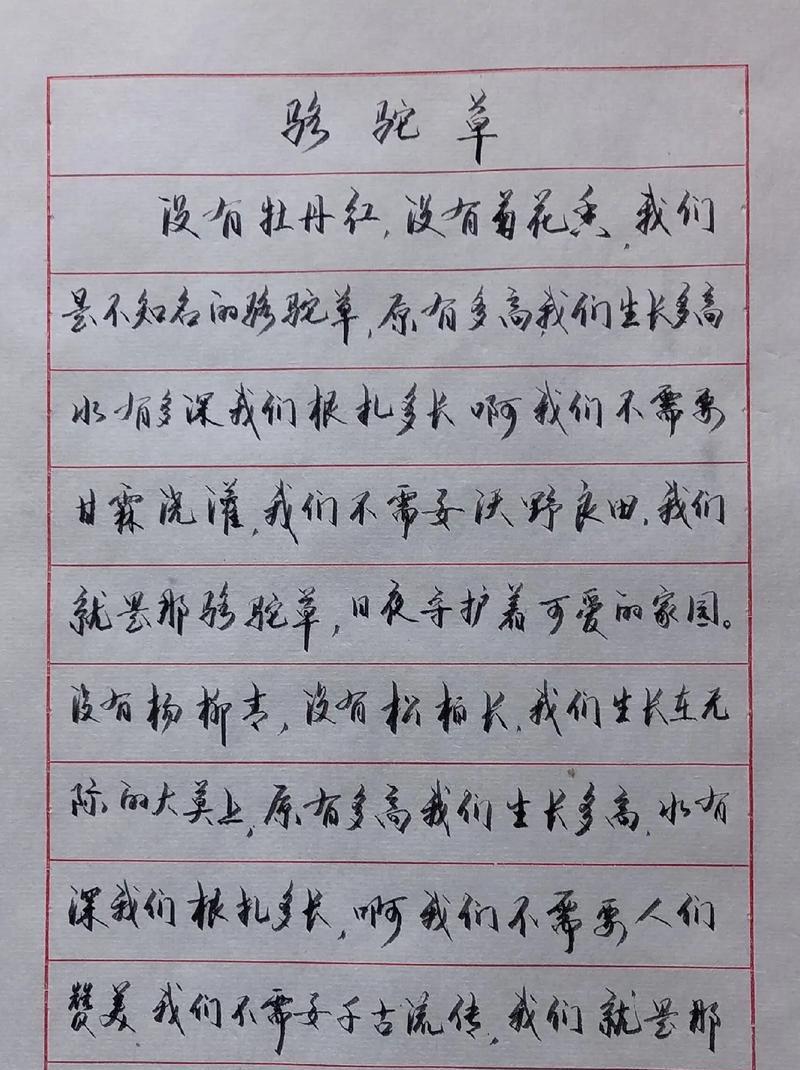 骆驼草
没有牡丹红,没有菊花香,我们
是不知名的骆驼草,原有多高,我们生长多高
水有多深我们根扎多长 啊我们不需要
甘霖浇灌,我们不需要沃野良田,我们
就是那骆驼草,日夜守护着可爱的家园。
没有杨柳青,没有松柏长,我们生长在无
际的大莫上,原有多高我们生长多高,水有
深我们根扎多长,啊我们不需要人们
赞美,我们不需要千古流传,我们就是那